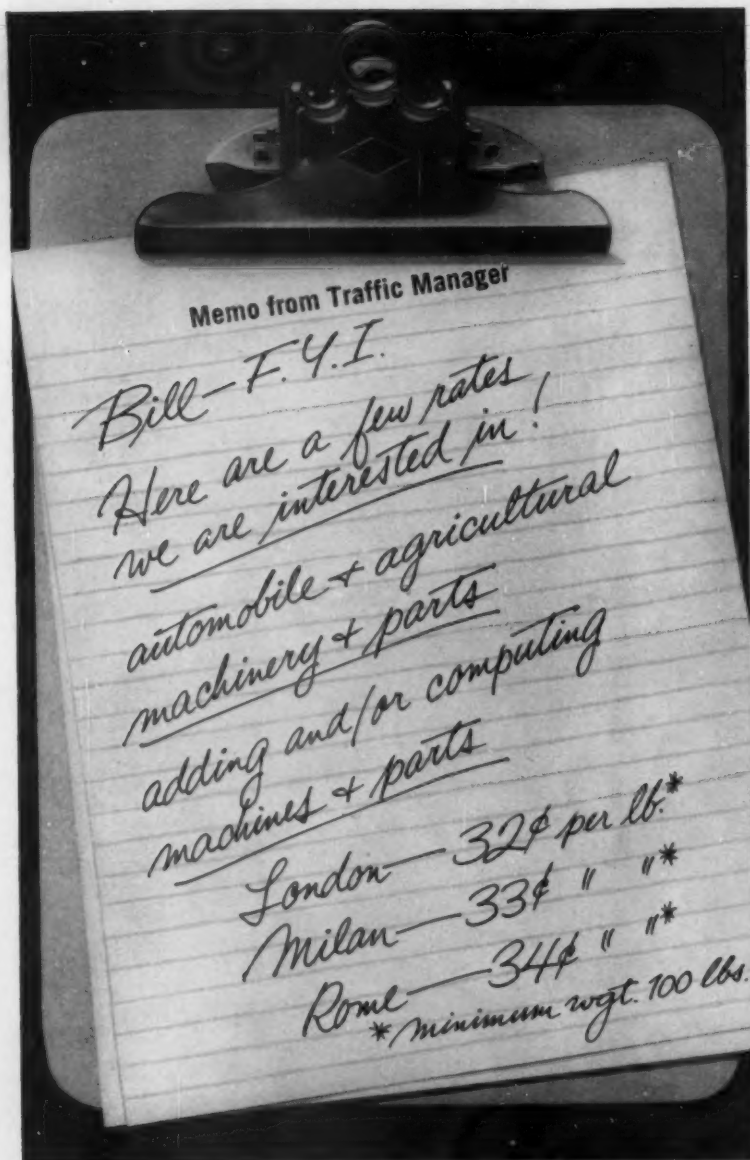 Memo from Traffic Manager
Bill—F.Y.I.
Here are a few rates
we are interested in!
automobile & agricultural
machinery & parts
adding and/or computing
machines & parts
London—32¢ per lb.*
Milan—33¢ " "*
Rome—34¢ " "*
*minimum wgt. 100 lbs.